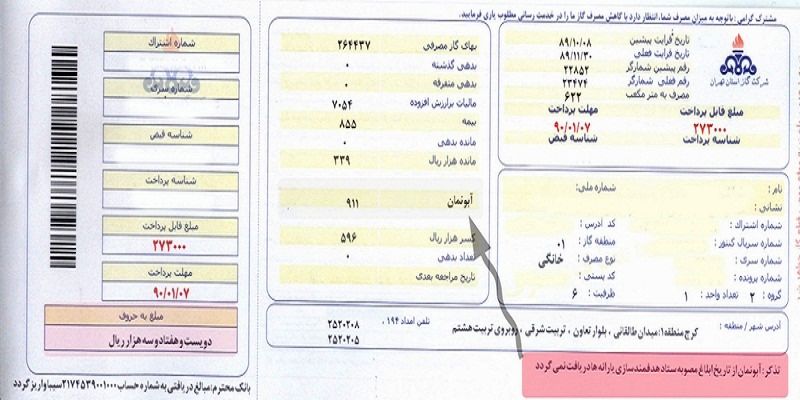 مشترک گرامی : باتوجه به میزان مصرف شما، انتظار دارد با کاهش مصرف گاز ما را در خدمت رسانی مطلوب یاری فرمایید.
شرکت گاز استان تهران
تاریخ قرایت پیشین ۸۹/۱۰/۰۸
تاریخ قرایت فعلی ۸۹/۱۱/۳۰
رقم پیشین شمارگر ۲۲۸۵۲
رقم فعلی شمارگر ۲۳۴۷۴
مصرف به متر مکعب ۶۲۲
مبلغ قابل پرداخت مهلت پرداخت
۲۷۳۰۰۰ ۹۰/۰۱/۰۷
شناسه پرداخت شناسه قبض
نام : شماره ملی:
نشانی :
شماره اشتراک : کد آدرس :
شماره سریال کنتور : منطقه گاز : ۰۱
شماره سری : نوع مصرف : خانگی
شماره پرونده : کد پستی :
گروه : ۲ تعداد واحد : ۱ ظرفیت : ۶
بهای گاز مصرفی ۲۶۴۴۳۷
بدهی گذشته ۰
بدهی متفرقه ۰
مالیات برارزش افزوده ۷۰۵۴
بیمه ۸۵۵
مانده بدهی ۰
مانده هزار ریال ۳۳۹
آبونمان ۹۱۱
کسر هزار ریال ۵۹۶
تعداد بدهی ۰
تاریخ مراجعه بعدی
آدرس شهر / منطقه : کرج منطقه۱: میدان طالقانی ، بلوار تعاون ، تربیت شرقی ، روبروی تربیت هشتم
تلفن امداد ۱۹۴ ,
۲۵۲۰۲۰۸
۲۵۲۰۲۰۵
تذکر: آبونمان از تاریخ ابلاغ مصوبه ستاد هدفمندسازی یارانه ها دریافت نمی گردد
شماره اشتراک
شماره سری
شناسه قبض
شناسه پرداخت
مبلغ قابل پرداخت
۲۷۳۰۰۰
مهلت پرداخت
۹۰/۰۱/۰۷
مبلغ به حروف
دویست و هفتاد و سه هزار ریال
بانک محترم: مبالغ دریافتی به شماره حساب ۲۱۷۴۵۳۹۰۰۱۰۰۰ سیبا واریز گردد